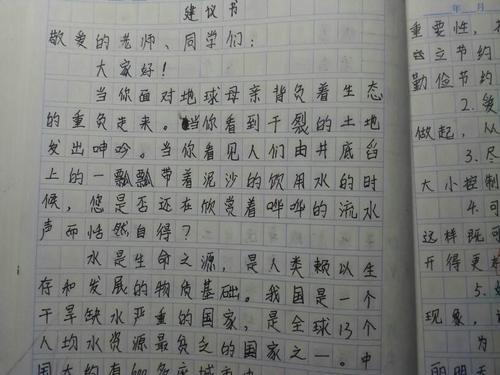 建议书
敬爱的老师、同学们：
大家好！
当你面对地球母亲背负着生态
的重负走来。当你看到干裂的土地
发出呻吟。当你看见人们由井底舀
上的一瓢瓢带着泥沙的饮用水的时
候，您是否还在欣赏着哗哗的流水
声而恬然自得？
水是生命之源，是人类赖以生
存和发展的物质基础。我国是一个
干旱缺水严重的国家，是全球13个
人均水资源最贫乏的国家之一。中
国大约有600多座城市中
年 月
重要性，
立节约
勤俭节约
2.
做起，从
3.尽
大小控制
4.可
这样既可
开得更
5.
现象，
为
丽明天